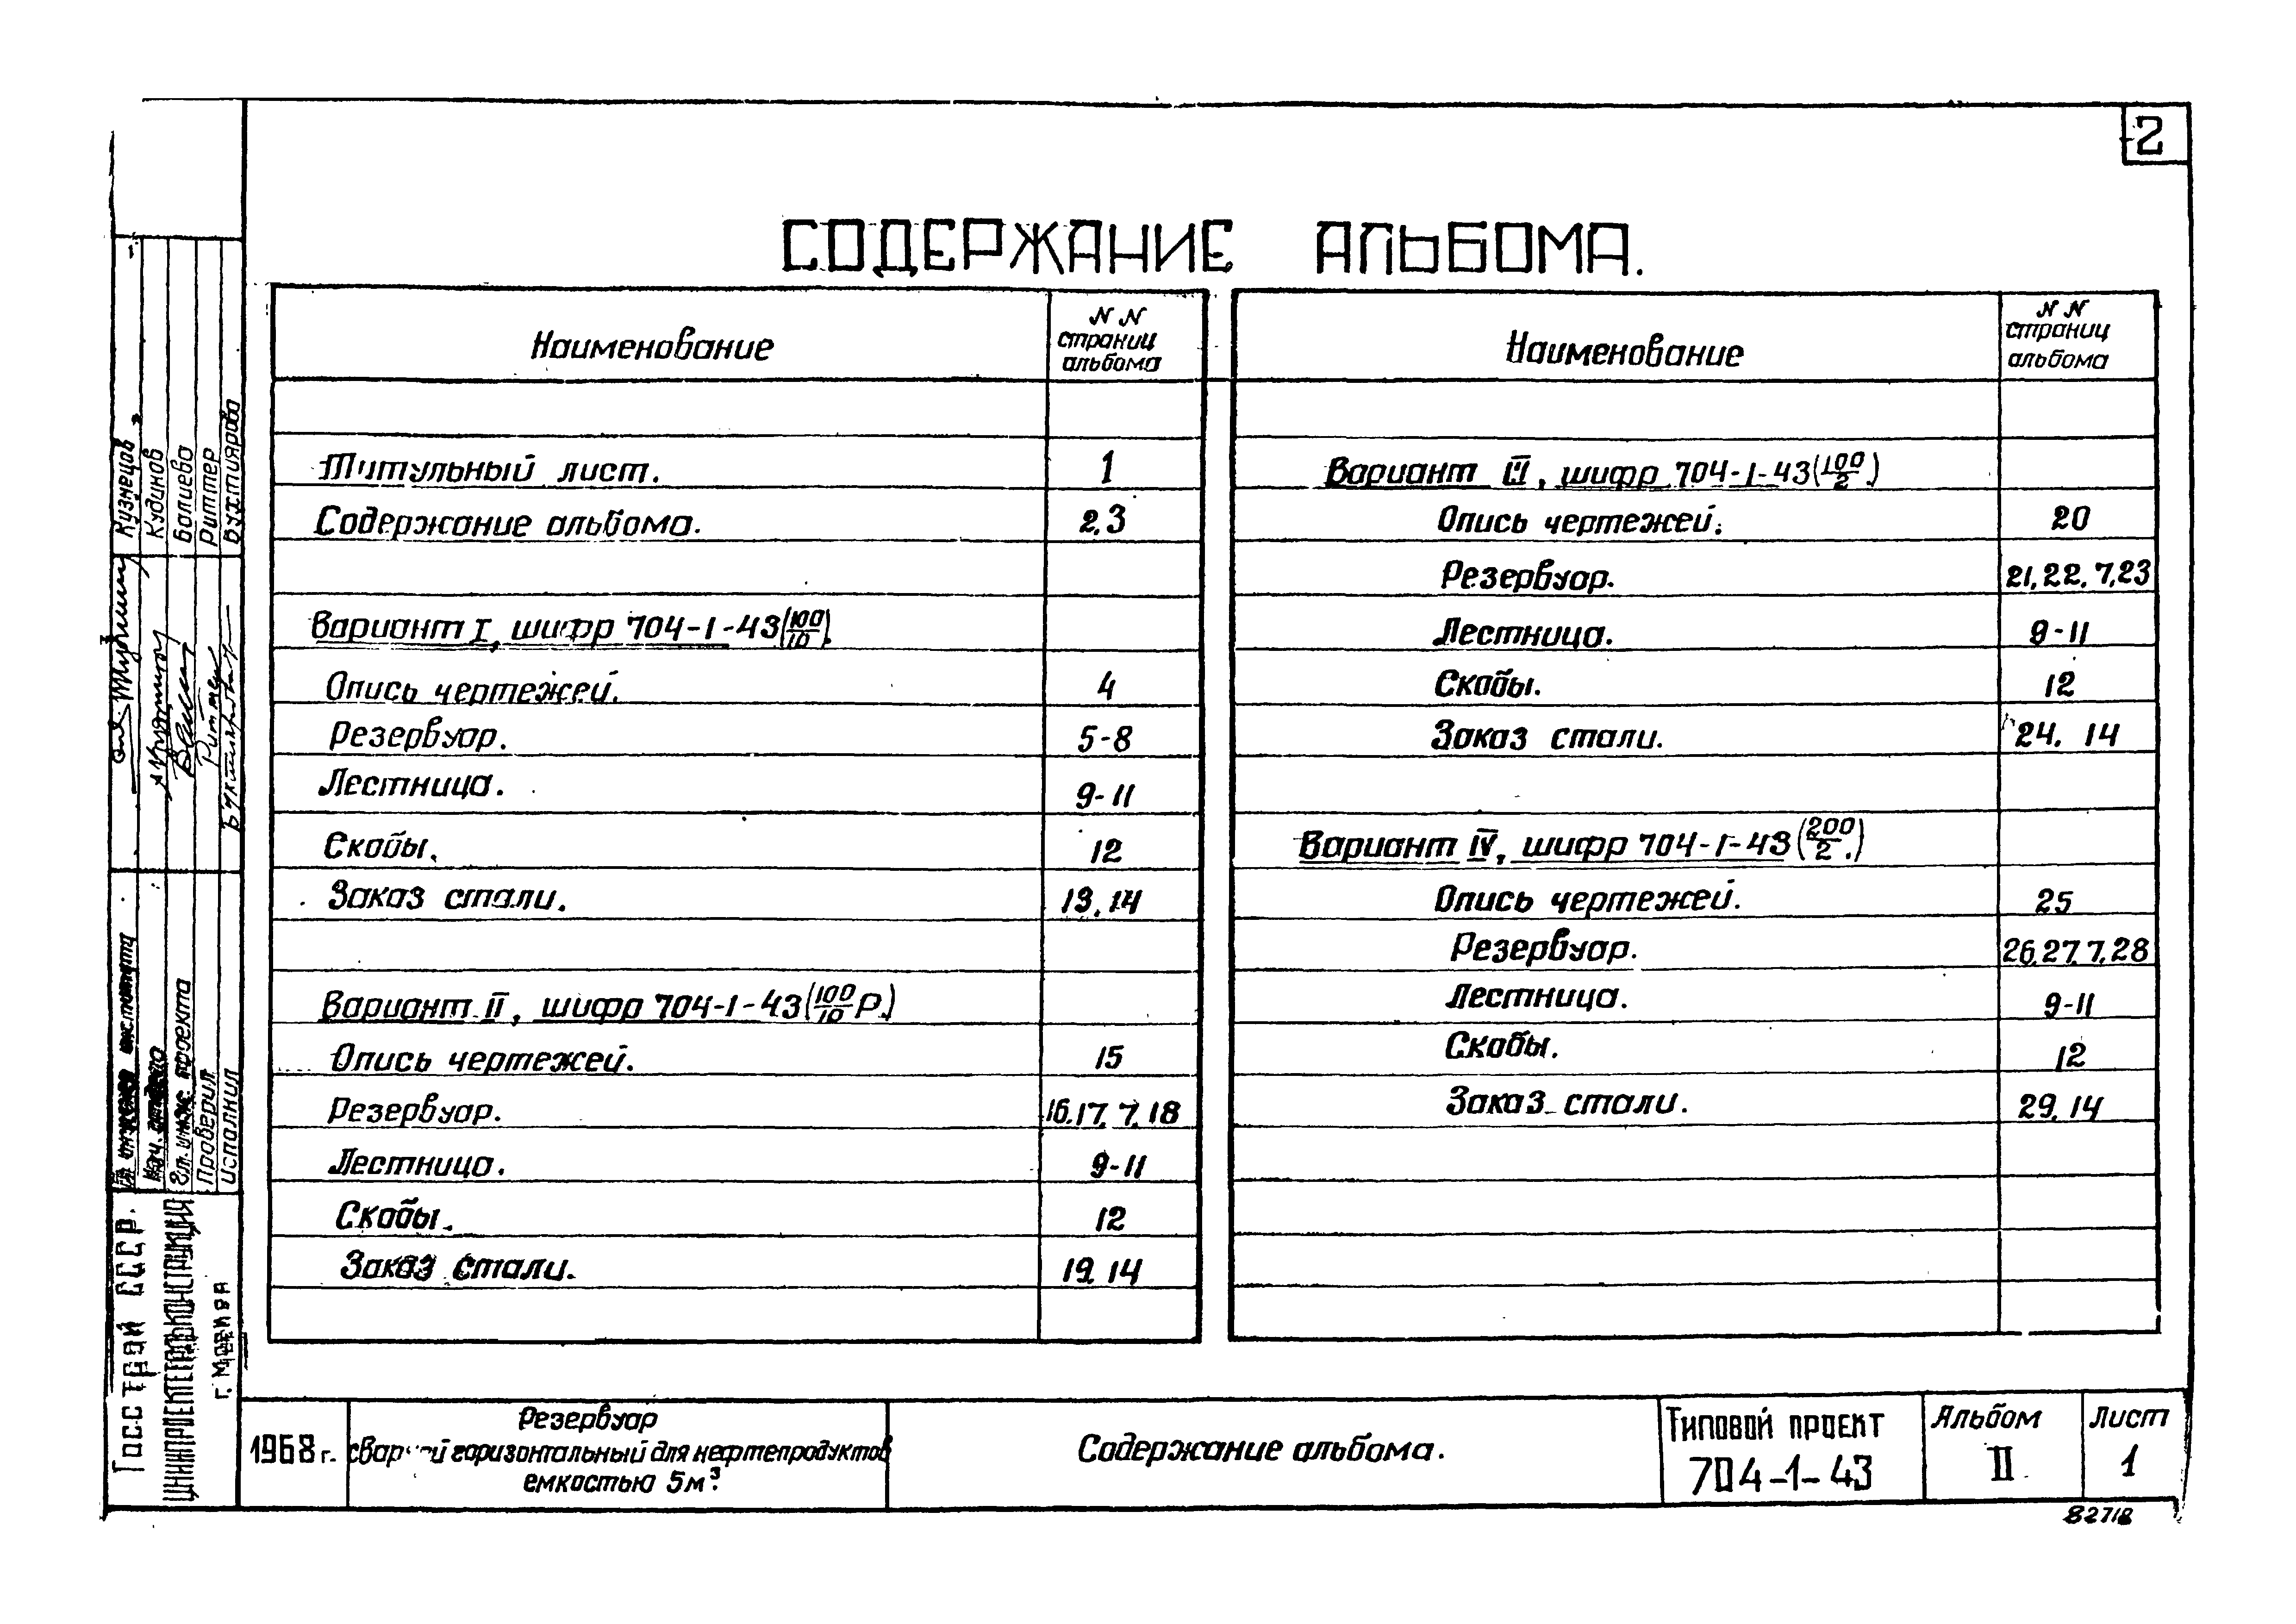 2
СОДЕРЖАНИЕ АЛЬБОМА.
Наименование
N N страниц альбома
Титульный лист. 1
Содержание альбома. 2,3
Вариант I, шифр 704-1-43(100/10).
Опись чертежей. 4
Резервуар. 5-8
Лестница. 9-11
Скобы. 12
Заказ стали. 13,14
Вариант II, шифр 704-1-43(100/10 Р.)
Опись чертежей. 15
Резервуар. 16,17,7,18
Лестница. 9-11
Скобы. 12
Заказ стали. 19,14
Наименование
N N страниц альбома
Вариант III, шифр 704-1-43(100/2.)
Опись чертежей. 20
Резервуар. 21,22,7,23
Лестница. 9-11
Скобы. 12
Заказ стали. 24, 14
Вариант IV, шифр 704-1-43(200/2.)
Опись чертежей. 25
Резервуар. 26,27,7,28
Лестница. 9-11
Скобы. 12
Заказ стали. 29,14
Госстрой СССР.
ЦНИИПРОЕКТСТАЛЬКОНСТРУКЦИЯ
г. Москва
Гл. инженер института Кузнецов
Нач. отдела Кудинов
Гл. инж. проекта Валиева
Проверил Риттер
Исполнил Бухтиярова
1968 г.
Резервуар
горизонтальный для нефтепродуктов
емкостью 5м³.
Содержание альбома.
Типовой проект
704-1-43
Альбом
II
Лист
1